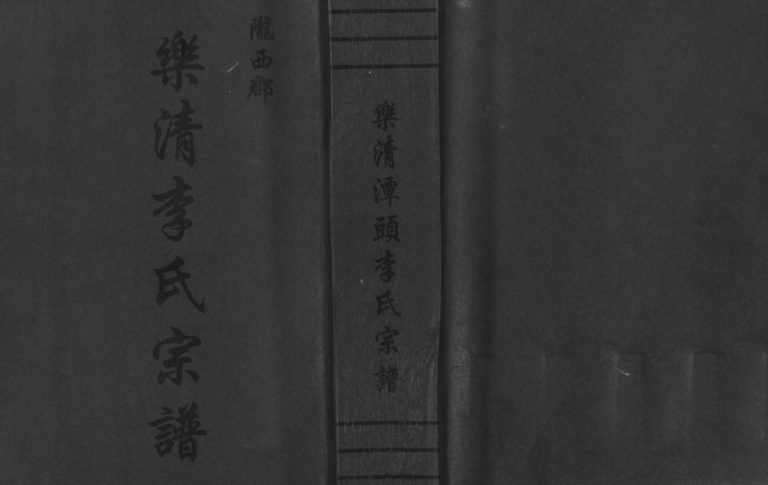 隴西郡
樂清李氏宗譜
樂清潭頭李氏宗譜